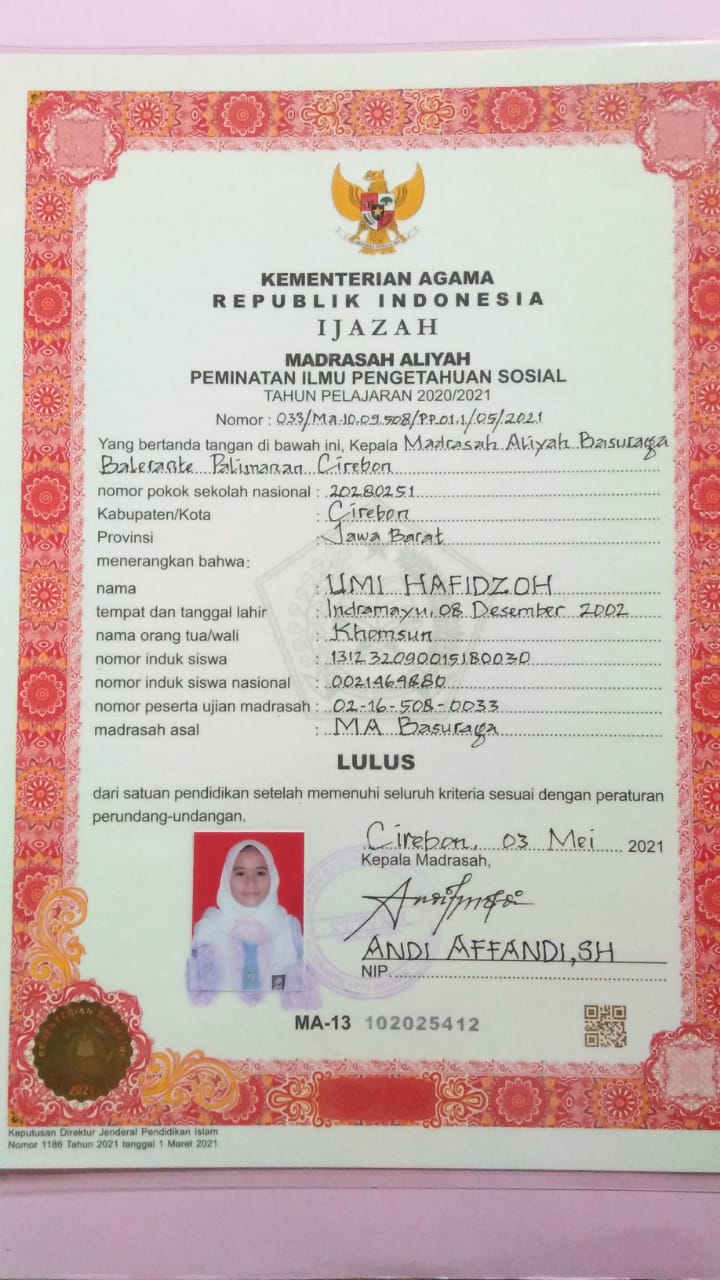 KEMENTERIAN AGAMA
REPUBLIK INDONESIA
IJAZAH
MADRASAH ALIYAH
PEMINATAN ILMU PENGETAHUAN SOSIAL
TAHUN PELAJARAN 2020/2021
Nomor : 033/Ma.10.09.508/PP.01.1/05/2021
Yang bertanda tangan di bawah ini, Kepala Madrasah Aliyah Basuraga
Balerante Palimanan Cirebon
nomor pokok sekolah nasional : 20280251
Kabupaten/Kota : Cirebon
Provinsi : Jawa Barat
menerangkan bahwa:
nama : UMI HAFIDZOH
tempat dan tanggal lahir : Indramayu, 08 Desember 2002
nama orang tua/wali : Khomsun
nomor induk siswa : 131232090015180030
nomor induk siswa nasional : 0021469880
nomor peserta ujian madrasah : 02-16-508-0033
madrasah asal : MA Basuraga
LULUS
dari satuan pendidikan setelah memenuhi seluruh kriteria sesuai dengan peraturan
perundang-undangan.
Cirebon, 03 Mei 2021
Kepala Madrasah,
ANDI AFFANDI,SH
NIP.
MA-13 102025412
2021
Keputusan Direktur Jenderal Pendidikan Islam
Nomor 1186 Tahun 2021 tanggal 1 Maret 2021